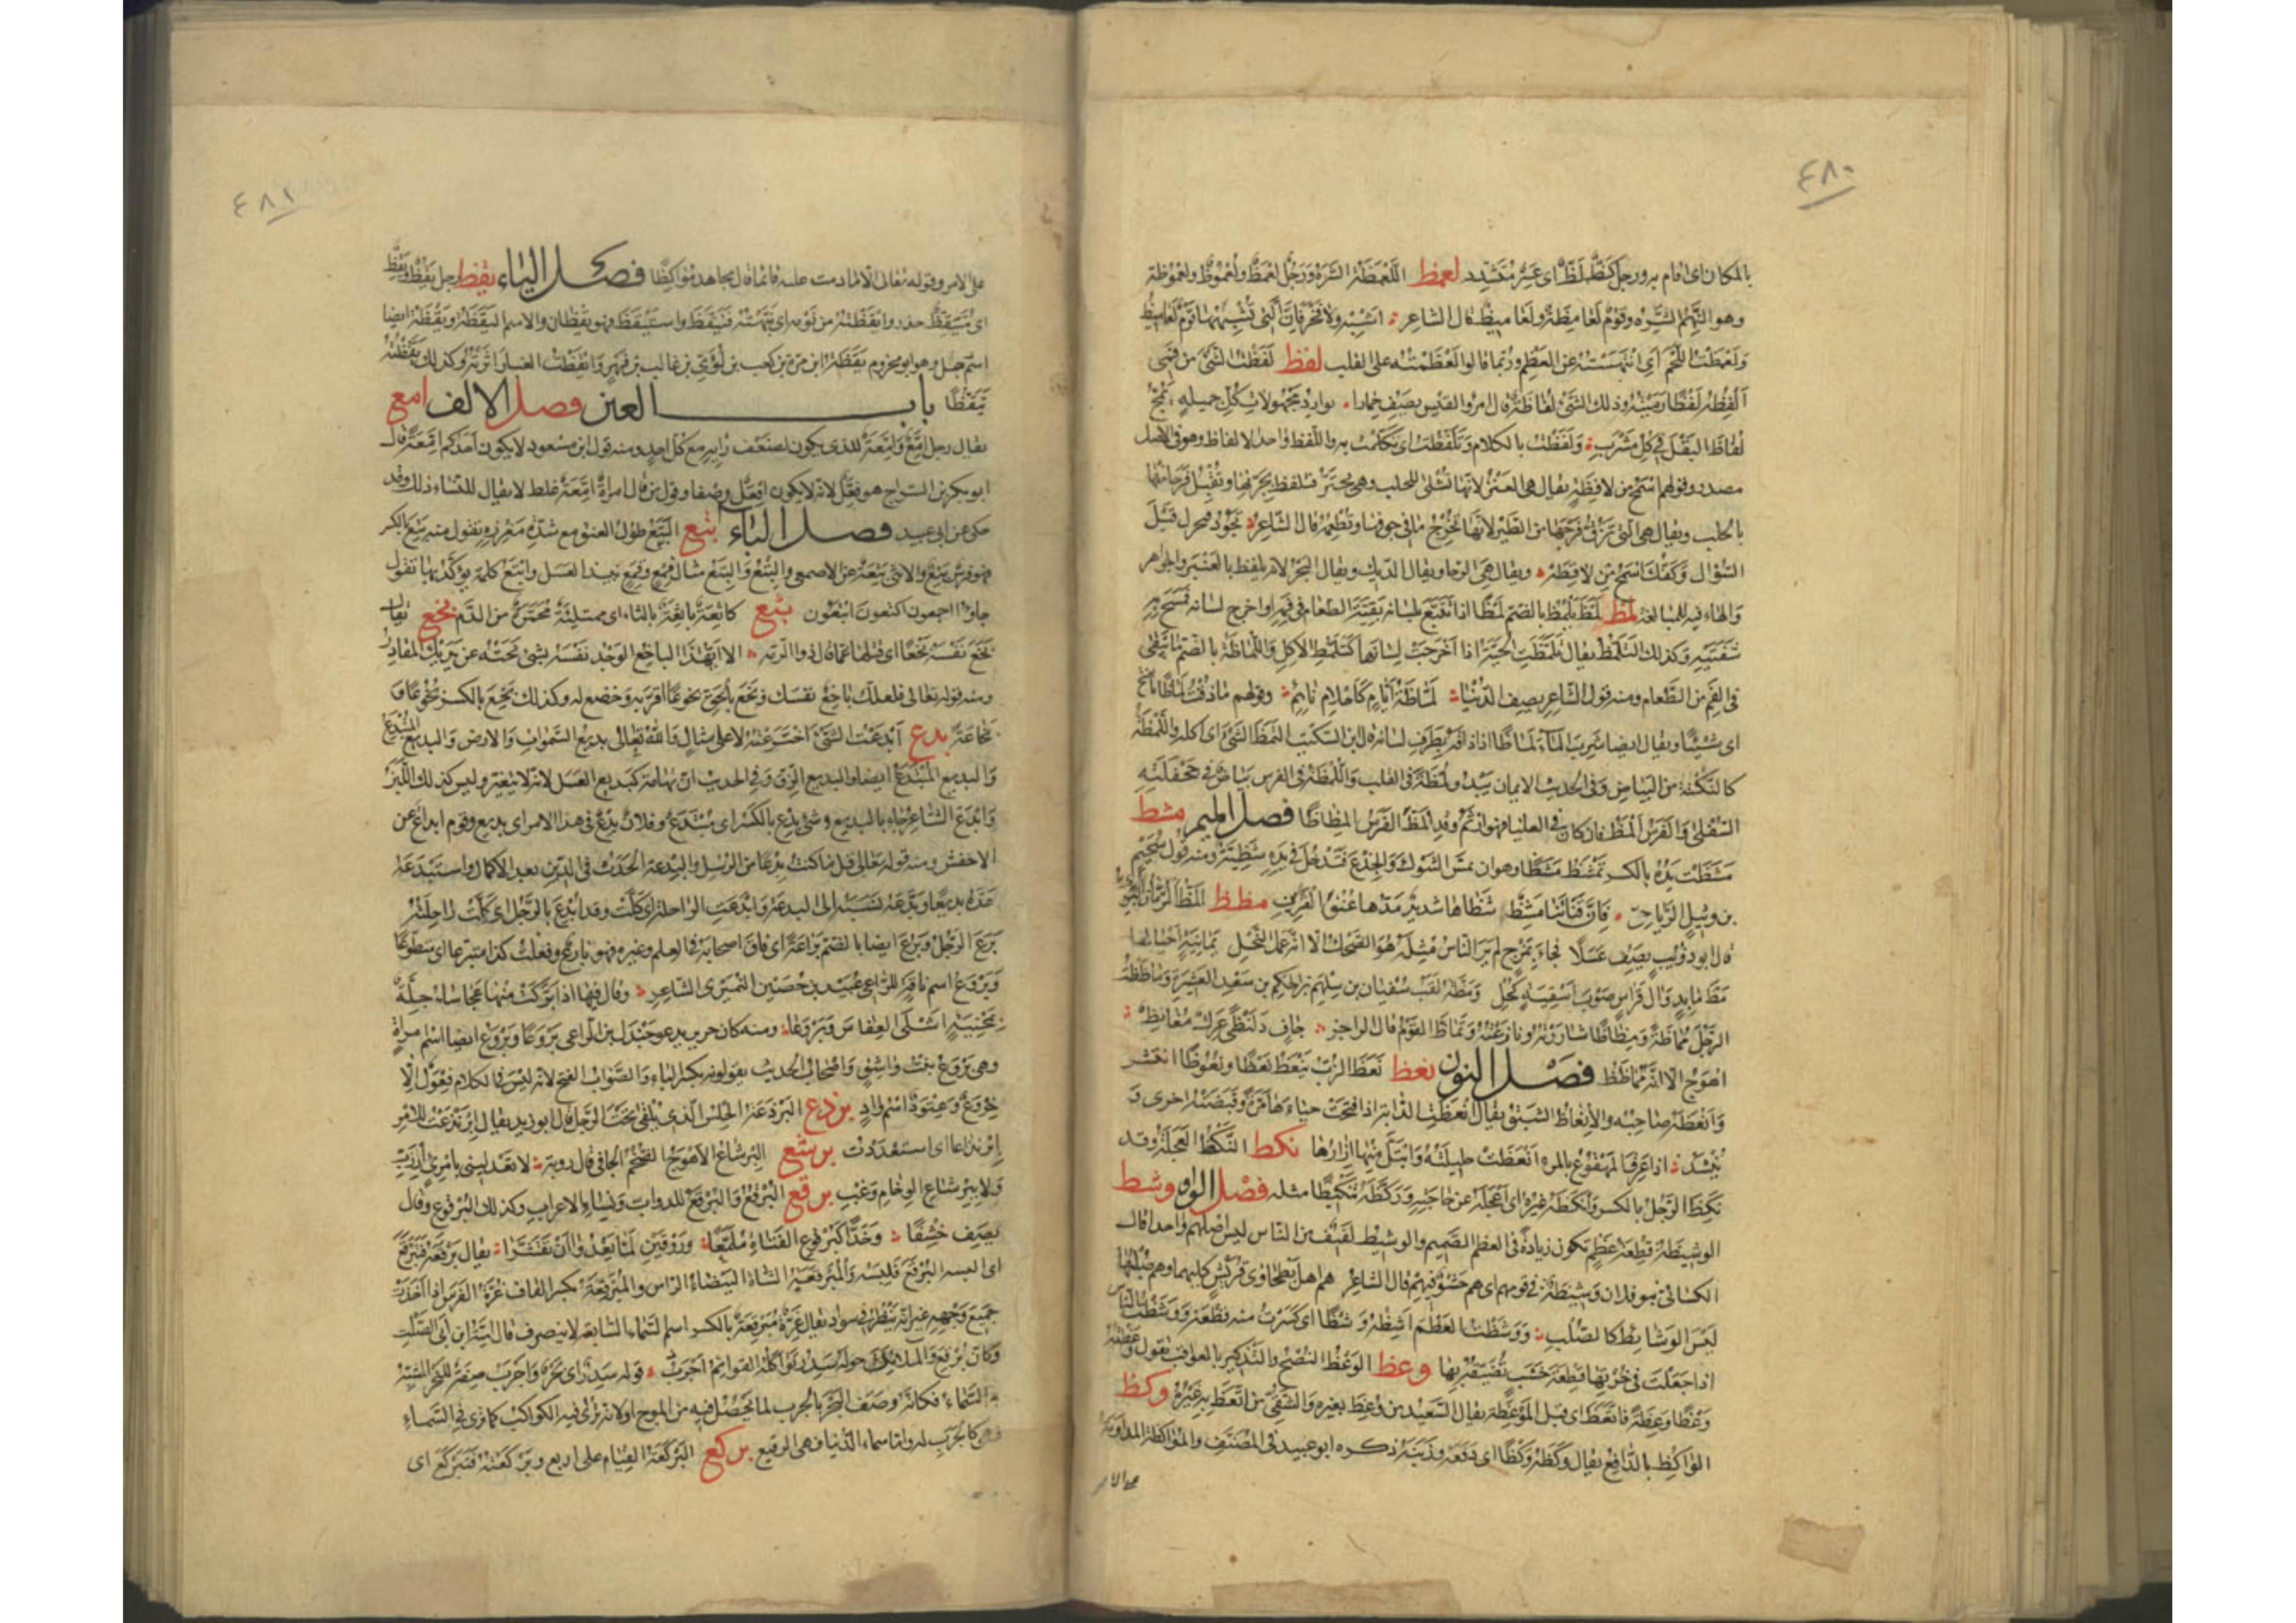 ٤٨٠
بالمكان اى اقام به ورجل كظ لظ اى عسر متشدد لعمظ اللعمظة الشره ورجل لعمظ ولعموظ ولعموظة
وهو النهم الشره وقوم لعامظة ولعاميظ قال الشاعر اشبه ولا فخر فان التى تشبهها قوم لعاميظ
ولعمظت اللحم اى انتهسته عن العظم وربما قالوا لعظمته على القلب لفظ لفظت الشئ من فمى
الفظه لفظا رميته وذلك الشئ لفاظة قال امرؤ القيس يصف حمارا يوارد مجهولات كل خميلة يمج
لفاظ البقل فى كل مشرب ولفظت بالكلام وتلفظت اى تكلمت به واللفظ واحد الالفاظ وهو فى الاصل
مصدر وقولهم اسمح من لافظة يقال هى العنز لانها تشلى للحلب وهى تجتر فتلفظ بجرتها وتقبل فرحا منها
بالحلب ويقال هى التى تزق فرخها من الطير لانها تخرج ما فى جوفها وتطعمه قال الشاعر تجود فتجزل قبل
السؤال وكفك اسمح من لافظة ويقال هى الرحا ويقال الديك ويقال البحر لانه يلفظ بالعنبر والجواهر
والهاء فيه للمبالغة لمظ لمظ يلمظ بالضم لمظا اذا تتبع بلسانه بقية الطعام فى فمه او اخرج لسانه فمسح به
شفتيه وكذلك التلمظ يقال تلمظت الحية اذا اخرجت لسانها كتلمظ الاكل واللماظة بالضم ما يبقى
فى الفم من الطعام ومنه قول الشاعر يصف الدنيا لماظة ايام كاحلام نائم وقولهم ما ذقت لماظا بالفتح
اى شيئا ويقال ايضا شرب الماء لماظا اذا ذاقه بطرف لسانه قال ابن السكيت التمظ الشئ اى اكله واللمظة
كالنكتة من البياض وفى الحديث الايمان يبدو لمظة فى القلب واللمظة فى الفرس بياض فى جحفلته
السفلى والفرس المظ فان كان فى العليا فهو ارثم وقد المظ الفرس المظاظا فصل الميم مشظ
مشظت يده بالكسر تمشظ مشظا وهو ان يمس الشوك والجذع فتدخل فى يده شظية ومنه قول سحيم
بن وثيل الرياحى فان قناتنا مشظ شظاها شديد مدها عنق القرين مظظ المظ الرمان البرى
قال ابو ذؤيب يصف عسلا فجاء بمزج لم ير الناس مثله هو الضحك الا انه عمل النحل يمانية احيا لها
مظ مابد وال قراس صوب اسقية كحل ومظة لقب سفيان بن سلهم بن الحكم بن سعد العشيرة وماظظت
الرجل مماظة ومظاظا شاررته ونازعته وتماظ القوم قال الراجز جاف دلنظى عرك مغانظ
اهوج الا انه مماظظ فصل النون نعظ نعظ الزب ينعظ نعظا ونعوظا انتشر
وانعظه صاحبه والانعاظ الشبق يقال انعظت الدابة اذا فتحت حياءها مرة وقبضته اخرى و
ينشد اذا عرق المهقوع بالمرء انعظت حليلته وابتل منها ازارها نكظ النكظ العجلة وقد
نكظ الرجل بالكسر وانكظه غيره اى اعجله عن حاجته ونكظه تنكيظا مثله فصل الواو وشظ
الوشيظة قطعة عظم تكون زيادة فى العظم الصميم والوشيظ لفيف من الناس ليس اصلهم واحدا قال
الكسائى بنو فلان وشيظة فى قومهم اى هم حشو فيهم قال الشاعر هم اهل بطحاوى قريش كليهما وهم صلبها
ليس الوشائظ كالصلب ووشظت العظم اشظه وشظا اى كسرت منه قطعة ووشظت الفاس
اذا جعلت فى خرتها قطعة خشب تضيقه بها وعظ الوعظ النصح والتذكير بالعواقب تقول وعظته
وعظا وعظة فاتعظ اى قبل الموعظة يقال السعيد من وعظ بغيره والشقى من اتعظ به غيره وكظ
الواكظ بالدافع يقال وكظه وكظا اى دفعه وزبنه ذكره ابو عبيد فى المصنف والمواكظة المداومة
على الامر
٤٨١
على الامر وقوله تعالى الا ما دمت عليه قائما قال مجاهد مواكظا فصل الياء يقظ رجل يقظ ويقظ
اى متيقظ حذر وايقظته من نومه اى نبهته فتيقظ واستيقظ فهو يقظان والاسم اليقظة ويقظة ايضا
اسم رجل وهو ابو مخزوم يقظة ابن مرة بن كعب بن لؤى بن غالب بن فهر وايقظت الغبار اثرته وكذلك يقظته
تيقظا باب العين فصل الالف امع
يقال رجل امع وامعة للذى يكون لضعف رايه مع كل احد ومنه قول ابن مسعود لا يكون احدكم امعة قال
ابو بكر بن السراج هو فعل لانه لا يكون افعل وصفا وقول من قال امراة امعة غلط لا يقال للنساء ذلك وقد
حكى عن ابى عبيد فصل الباء بتع البتع طول العنق مع شدة مغرزه تقول منه بتع بالكسر
فهو فرس بتع والانثى بتعة عن الاصمعى والبتع والبتع مثال قمع وقمع نبيذ العسل وابتع كلمة يؤكد بها تقول
جاؤا اجمعون اكتعون ابتعون بثع شفة باثعة بالثاء اى ممتلئة محمرة من الدم بخع يقال
بخع نفسه بخعا اى قتلها غما قال ذو الرمة الا ايهذا الباخع الوجد نفسه لشئ نحته عن يديك المقادر
ومنه قوله تعالى فلعلك باخع نفسك وبخع بالحق بخوعا اقر به وخضع له وكذلك بخع بالكسر بخوعا و
بخاعة بدع ابدعت الشئ اخترعته لا على مثال والله تعالى بديع السموات والارض والبديع المبتدع
والبديع المبتدع ايضا والبديع الزق وفى الحديث ان تهامة كبديع العسل لانه لا يتغير وليس كذلك اللبن
وابدع الشاعر جاء بالبديع وشئ بدع بالكسر اى مبتدع وفلان بدع فى هذا الامر اى بديع وقوم ابداع عن
الاخفش ومنه قوله تعالى قل ما كنت بدعا من الرسل والبدعة الحدث فى الدين بعد الاكمال واستبدعه
عده بديعا وبدعه نسبه الى البدعة وابدعت الراحلة اى كلت وقد ابدع بالرجل اى كلت راحلته
برع الرجل وبرع ايضا بالضم براعة اى فاق اصحابه فى العلم وغيره فهو بارع وفعلت كذا متبرعا اى متطوعا
وبروع اسم ناقة للراعى عبيد بن حصين النميرى الشاعر وقال فيها اذا بركت منها عجاساء جلة
بمحنية اشلى العفاس وبروعا ومنه كان جرير يدعو جندل بن الراعى بروعا وبروع ايضا اسم امراة
وهى بروع بنت واشق واصحاب الحديث يقولونه بكسر الباء والصواب الفتح لانه ليس فى الكلام فعول الا
خروع وعتود اسم واد بردع البردعة الحلس الذى يلقى تحت الرحل قال ابو زيد يقال ابرندعت للامر
ابرنداعا اى استعددت برشع البرشاع الاهوج الضخم الجافى قال رؤبة لا تعدلينى بامرئ ارزب
ولا ببرشاع الوخام وغب برقع البرقع والبرقع للدواب ونساء الاعراب وكذلك البرقوع وقال
يصف خشفا وخد كبرقوع الفتاة ملمع وروقين لما يعدوا ان تقشرا يقال برقعه فتبرقع
اى البسه البرقع فلبسه والمبرقعة الشاة البيضاء الراس والمبرقعة بكسر القاف غرة الفرس اذا اخذت
جميع وجهه غير انه ينظر فى سواد يقال غرة مبرقعة وبرقع بالكسر اسم السماء السابعة لا ينصرف قال امية ابن ابى الصلت
وكان برقع والملائك حوله سدر تواكله القوائم اجرب قوله سدر اى بحر واجرب صفة للبحر المشبه
به السماء فكانه وصف البحر بالجرب لما يحصل فيه من الموج او لانه ترى فيه الكواكب كما ترى فى السماء
فهو كالجرب له واما سماء الدنيا فهى الرقيع بركع البركعة القيام على اربع وبركعته فتبركع اى